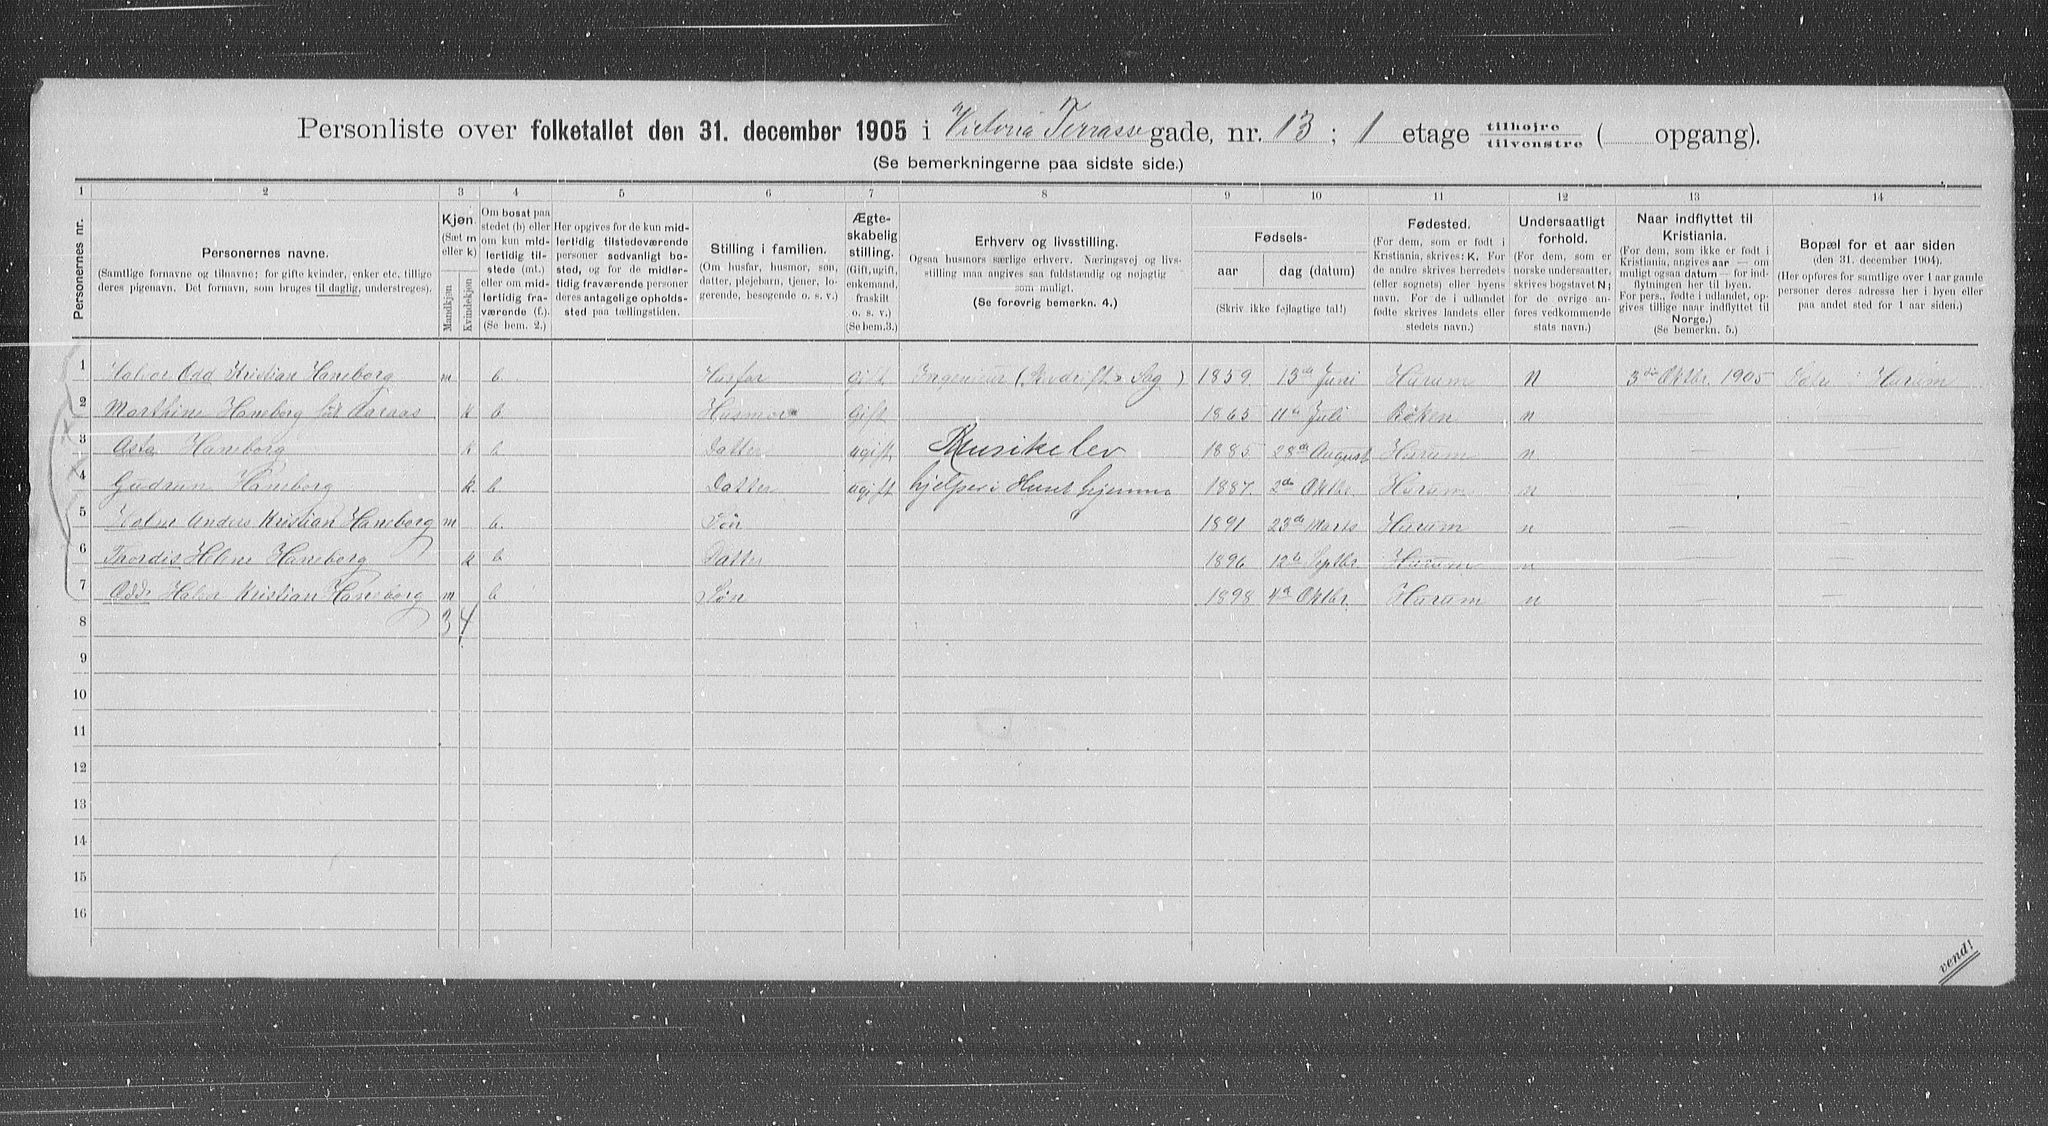 Personliste over folketallet den 31. december 1905 i Victoria Terrasse gade, nr. 13 ; 1 etage tilhøjre tilvenstre ( opgang).
(Se bemerkningerne paa sidste side.)
1 2 3 4 5 6 7 8 9 10 11 12 13 14
Personernes nr.
Personernes navne.
(Samtlige fornavne og tilnavne; for gifte kvinder, enker etc. tillige
deres pigenavn. Det fornavn, som bruges til daglig, understreges).
Kjøn.
(Sæt m
eller k)
Mandkjøn
Kvindekjøn
Om bosat paa
stedet (b) eller
om kun mid-
lertidig til-
stede (mt.)
eller om mid-
lertidig fra-
værende (f.).
(Se bem. 2.)
Her opgives for de kun mid-
lertidig tilstedeværende
personer sedvanlig bo-
sted, og for de midler-
tidig fraværende personer
deres antagelige opholds-
sted paa tællingstiden.
Stilling i familien.
(Om husfar, husmor, søn,
datter, plejebarn, tjener, lo-
gerende, besøgende o. s. v.)
Ægte-
skabelig
stilling.
(Gift, ugift,
enkemand,
fraskilt
o. s. v.)
(Se bem.3.)
Erhverv og livsstilling.
Ogsaa husmors særlige erhverv. Næringsvej og livs-
stilling maa angives saa fuldstændig og nøjagtig
som muligt.
(Se forøvrig bemerkn. 4.)
Fødsels-
aar
dag (datum)
(Skriv ikke fejlagtige tal!)
Fødested.
(For dem, som er født i
Kristiania, skrives: K. For
de andre skrives herredets
(eller sognets) eller byens
navn. For de i udlandet
fødte skrives landets eller
stedets navn.)
Undersaatligt
forhold.
(For dem, som er
norske undersaatter,
skrives bogstavet N;
for de øvrige an-
føres vedkommende
stats navn.)
Naar indflyttet til
Kristiania.
(For dem, som ikke er født i
Kristiania, angives aar — om
muligt ogsaa datum — for ind-
flytningen her til byen.
For pers., fødte i udlandet, op-
gives tillige naar indflyttet til
Norge.)
(Se bemerkn. 5.)
Bopæl for et aar siden
(den 31. december 1904).
(Her opføres for samtlige over 1 aar gamle
personer deres adresse her i byen eller
paa andet sted for 1 aar siden.)
1 Halvor Odd Kristian Haneborg m b. Husfar Gift Ingeniør ( Sag ) 1859 13de Juni Hurum N 3die Oktbr. 1905 i Hurum
2 Marthine Haneborg født Aaraas k b. Husmor Gift 1865 11te Juli Røken n — —
3 Asta Haneborg k b Datter ugift Musikelev 1885 28de August Hurum n — —
4 Gudrun Haneborg k. b Datter ugift hjelper i Huset hjemme 1887. 2den Oktbr. Hurum n — —
5 Halvor Anders Kristian Haneborg m b. Søn 1891 23de Marts Hurum n — —
6 Thordis Helene Haneborg k b Datter 1896 12te Septbr. Hurum n — —
7 Odd Halvor Kristian Haneborg m b Søn 1898 4de Oktbr. Hurum n — —
8 3 4
9
10
11
12
13
14
15
16
vend!